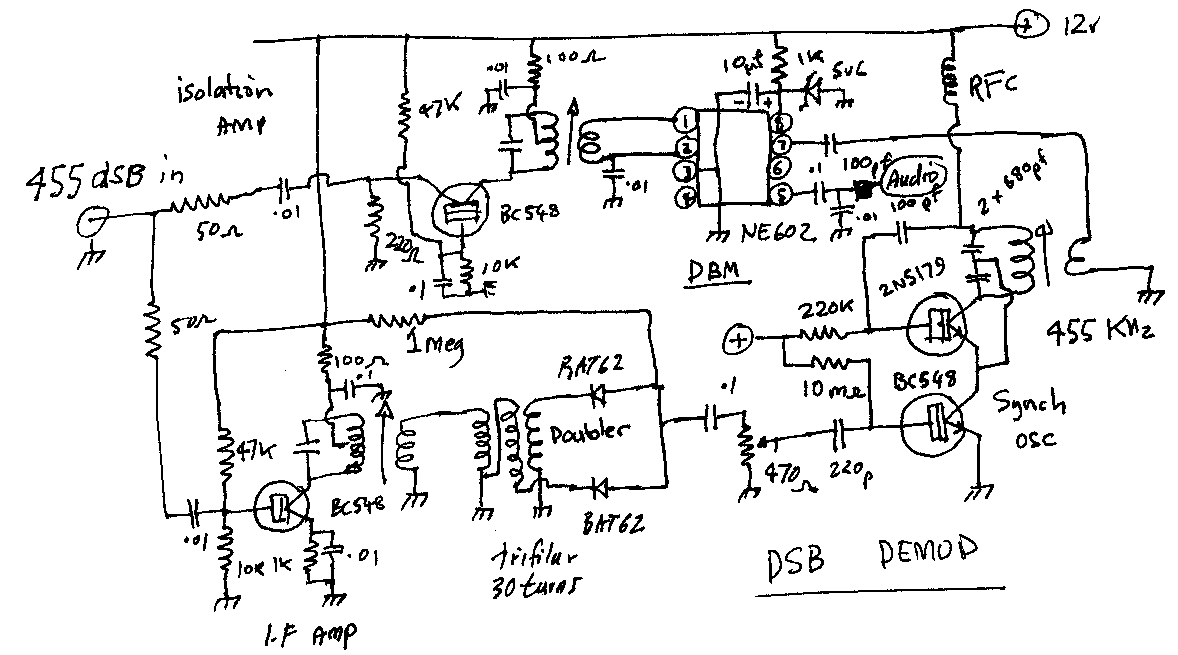 12v
isolation
AMP
.01
100Ω
47K
10µf
1K
5v6
RFC
455 dsB in
50Ω
.01
220Ω
BC548
.1
10K
.01
1
2
3
4
8
7
6
5
.1
100pf
Audio
.01
100pf
2 + 680pf
NE602
DBM
2N5179
50Ω
1meg
100Ω
.1
BAT62
220K
10me
BC548
455 KHz
.1
Synch
OSC
Doubler
47K
BC548
470Ω
220p
.01
10K
1K
.01
BAT62
trifilar
30 turns
DSB DEMOD
I.F AMP